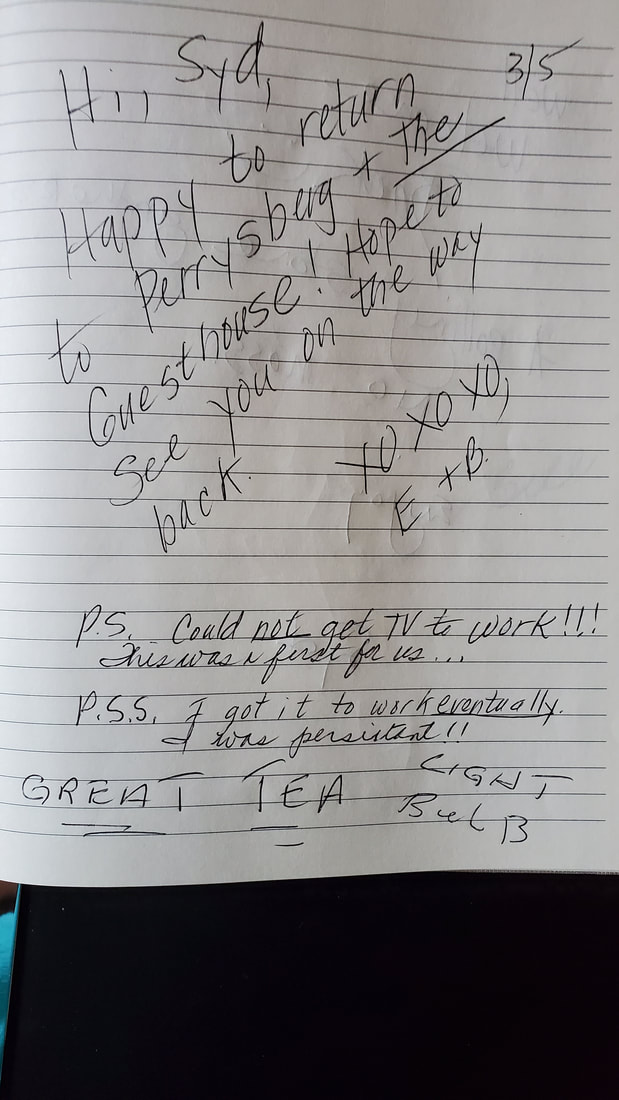 3/5
Hi, Syd,
Happy to return
to Perrysberg + the
Guesthouse! Hope to
See you on the way
back.
XO XO XO,
E + B.
P.S. Could not get TV to work!!!
This was a first for us...
P.S.S. I got it to work eventually.
I was persistant!!
GREAT TEA
LIGHT
BulB